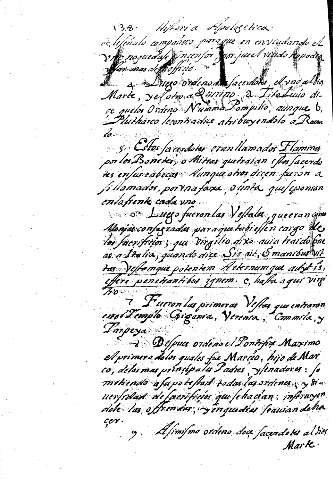 138 Historia Apologetica
le señalo compañero porque en enviudando el
4. Luego ordeno dos sacerdotes, el uno a
Marte, y el otro a Quirino, a Tito Livio di-
ce que los Ordeno Numma Pompilio, aunque b,
Plutharco le contradize atribuyendolo a Romu-
lo.
5. Estos sacerdotes eran llamados Flamines
por los Bonetes, o Mitras que traian essos sacerdo-
tes en sus cabeças. Aunque otros dicen fueron a
si llamados, por una faxa, o cinta que se ponian
en la frente cada uno.
Luego fueron las Vestales, que eran como
Monjas consagradas, para que tubiessen cargo de
los sacrificios; que Virgilio dixo avia traido Ene-
as a Italia, quando dixo Sic ait, & manibus vit-
tas, Vestamque potentem, Aeternumque adytis
effert penetralibus ignem. c, hasta aqui Vir-
gilio
Fueron las primeras Vestas que entraron
en el Templo Gegania, Verenia, Canuela, y
Tarpeya.
8. Despues ordeno el Pontifice Maximo
el primero de los quales fue Marcio, hijo de Mar-
co, de los mas principales Padres, y senadores: so-
metiendo a su potestad todas las ordenes, y di-
versidad de sacrificios que se hacian, instruyen-
dole las offrendas, y en que dias se avian de ha-
cer.
9. Asimismo ordeno doce sacerdotes al Dios
Marte.